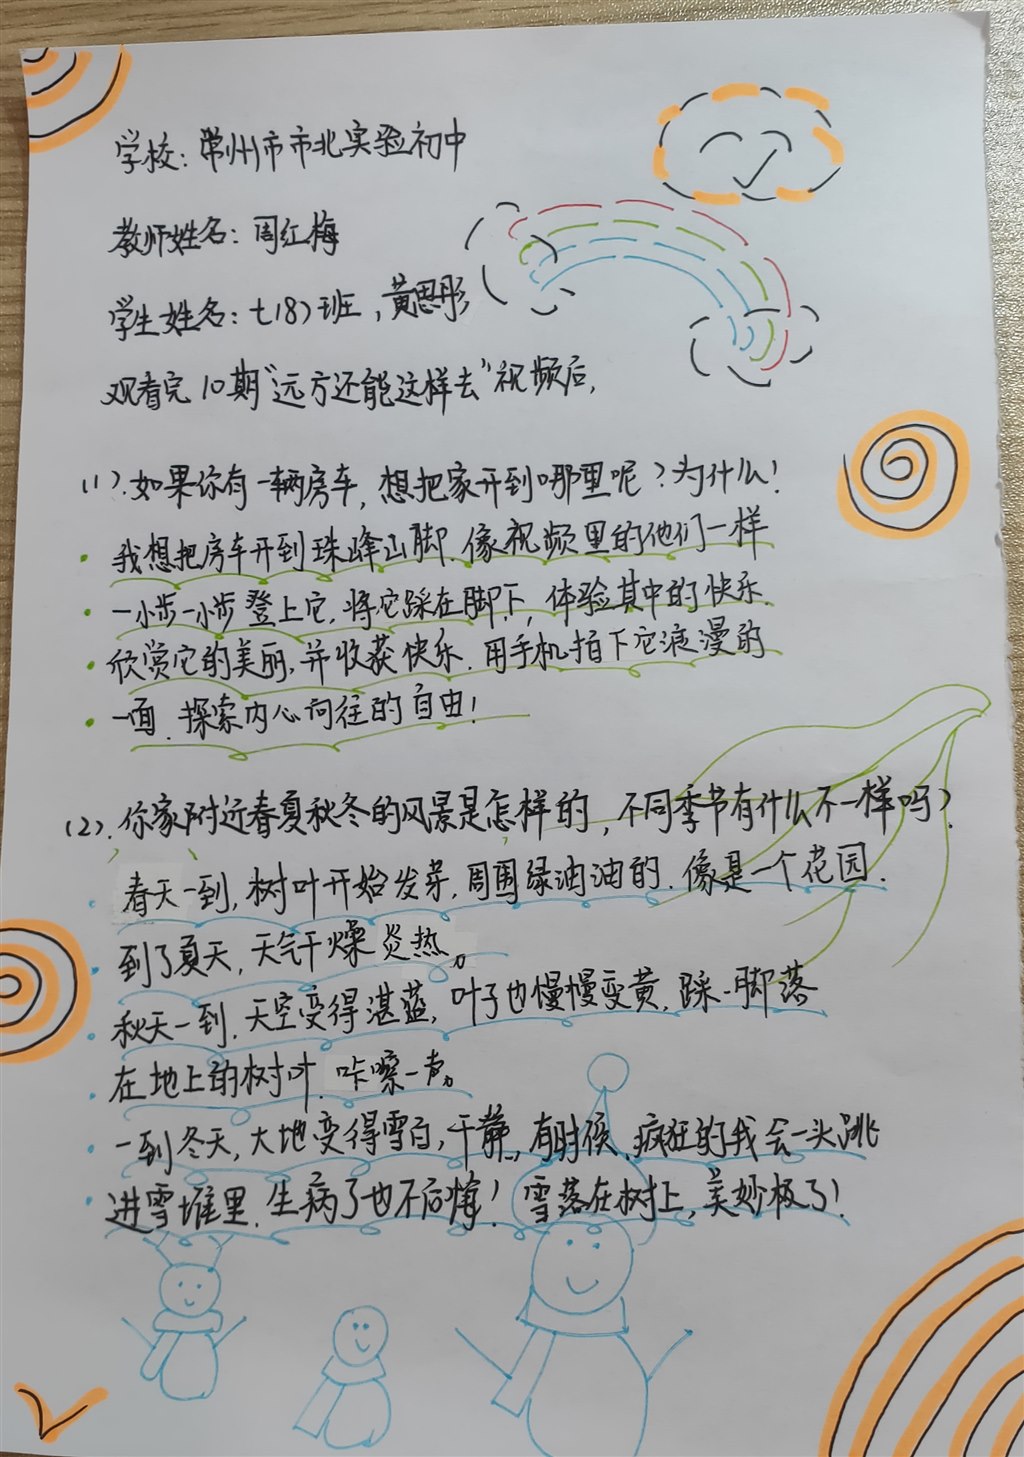 学校：常州市市北实验初中
教师姓名：周红梅
学生姓名：七(8)班，黄思彤
观看完10期“远方还能这样去”视频后，
(1).如果你有一辆房车，想把家开到哪里呢？为什么！
我想把房车开到珠峰山脚.像视频里的他们一样
一小步一小步登上它.将它踩在脚下，体验其中的快乐.
欣赏它的美丽，并收获快乐.用手机拍下它浪漫的
一面.探索内心向往的自由！
(2).你家附近春夏秋冬的风景是怎样的，不同季节有什么不一样吗？
春天一到，树叶开始发芽，周围绿油油的.像是一个花园.
到了夏天，天气干燥炎热。
秋天一到.天空变得湛蓝，叶子也慢慢变黄，踩一脚落
在地上的树叶.咔嚓一声。
一到冬天，大地变得雪白，干静..有时侯.疯狂的我会一头跳
进雪堆里.生病了也不后悔！雪落在树上，美妙极了！